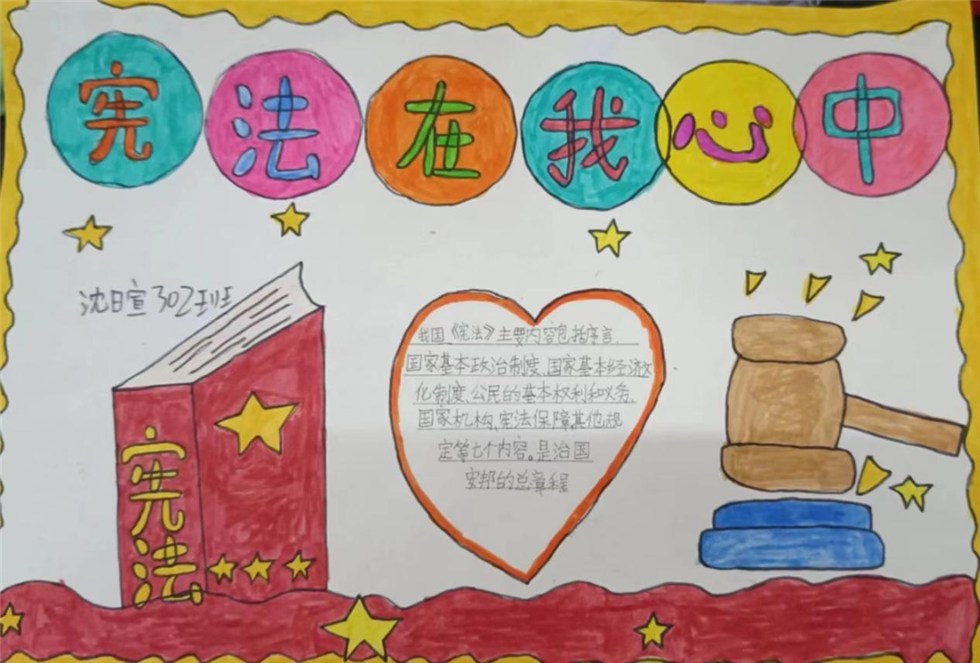 宪法在我心中
沈日宣302班
我国《宪法》主要内容包括序言、
国家基本政治制度、国家基本经济文
化制度、公民的基本权利和义务、
国家机构、宪法保障、其他规
定等七个内容。是治国
安邦的总章程
宪法